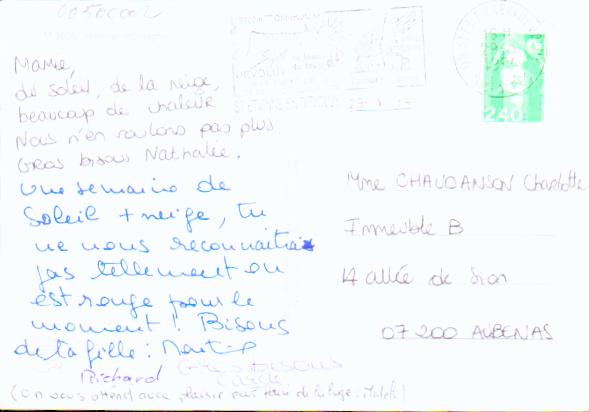 00500002
Mamie,
du soleil, de la neige,
beaucoup de chaleur
Nous n'en voulons pas plus
Gros bisous Nathalie.
Une semaine de
soleil + neige, tu
ne nous reconnaitrais
pas tellement on
est rouge pour le
moment! Bisous
de ta fille:
Richard
Gros bisous
(on vous attend avec plaisir
DEVOLUY
ST ETIENNE EN DEVOLUY
2,40
Mme CHAUDANSON Charlotte
Immeuble B
14 allée de
07200 AUBENAS